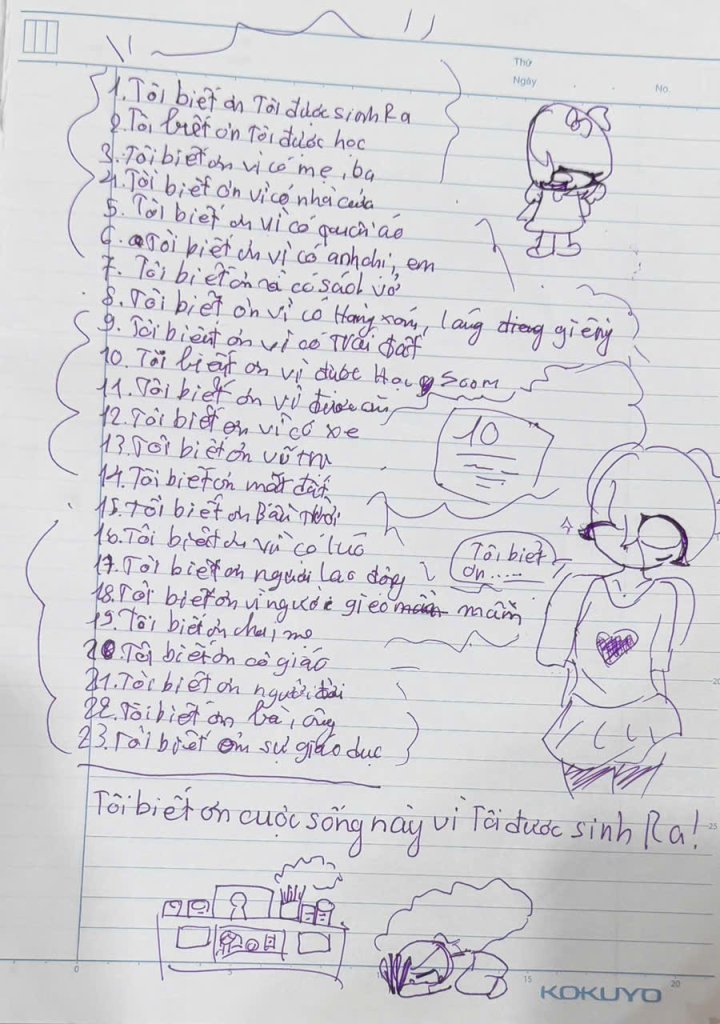 Thứ
Ngày
No.
1. Tôi biết ơn Tôi được sinh Ra
2. Tôi biết ơn Tôi được học
3. Tôi biết ơn vì có mẹ, ba
4. Tôi biết ơn vì có nhà cửa
5. Tôi biết ơn vì có quần áo
6. Tôi biết ơn vì có anh chị, em
7. Tôi biết ơn vì có sách vở
8. Tôi biết ơn vì có Hàng xóm, láng giềng
9. Tôi biết ơn vì có Trái Đất
10. Tôi biết ơn vì được Học Zoom
11. Tôi biết ơn vì được
12. Tôi biết ơn vì có xe
13. Tôi biết ơn vũ trụ
14. Tôi biết ơn mặt đất
15. Tôi biết ơn Bầu Trời
16. Tôi biết ơn vì có
17. Tôi biết ơn người lao động
18. Tôi biết ơn vì người gieo mầm
19. Tôi biết ơn cha, mẹ
20. Tôi biết ơn cô giáo
21. Tôi biết ơn người
22. Tôi biết ơn bà, ông
23. Tôi biết ơn sự giáo dục
10
Tôi biết
ơn.....
Tôi biết ơn cuộc sống này vì Tôi được sinh Ra!
0
5
15
20
20
25
KOKUYO